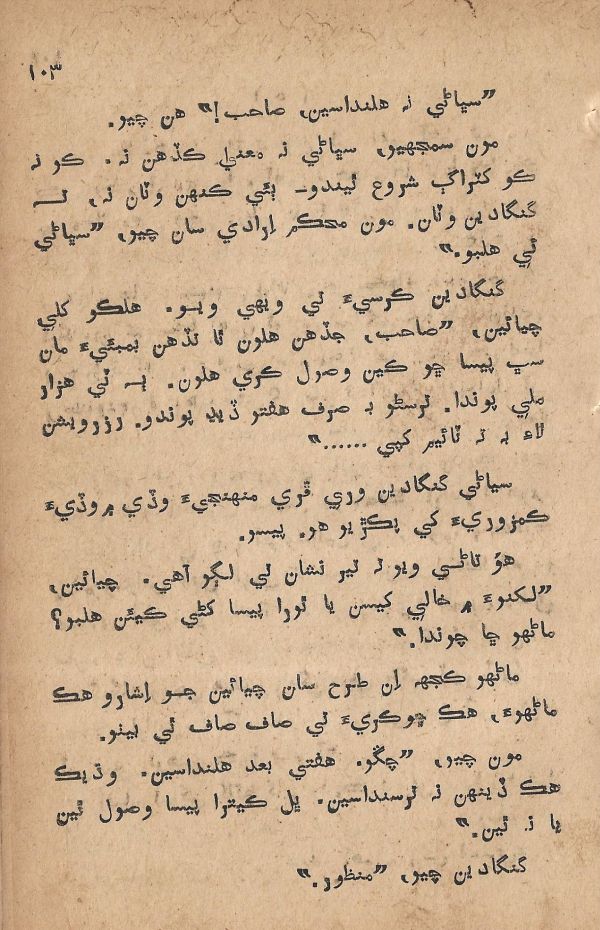 ۱۰۳
”سڀاڻي نہ هلنداسين، صاحب!“ هن چيو.
مون سمجهيو، سڀاڻي نہ معنيٰ ڪڏهن نہ. ڪو نہ
ڪو کٽراڳ شروع ٿيندو۔ ٻئي ڪنهن وٽان نہ، تہ
گنگادين وٽان. مون محڪم اِرادي سان چيو، ”سڀاڻي
ئي هلبو.“
گنگادين ڪرسيءَ تي ويهي ويو. هلڪو کلي
چيائين، ”صاحب، جڏهن هلون ٿا تڏهن بمبئيءَ مان
سڀ پيسا ڇو ڪين وصول ڪري هلون. ٻہ ٽي هزار
ملي پوندا. ترسڻو بہ صرف هفتو ڏيڍ پوندو. رزرويشن
لاءِ بہ تہ ٽائيم کپي ......“
سڀاڻي گنگادين وري ڦري منهنجيءَ وڏي ۾ وڏيءَ
ڪمزوريءَ کي پڪڙيو هو. پيسو.
هوُ تاڻسي ويو تہ تير نشان تي لڳو آهي. چيائين،
”لکنوءَ ۾ خالي کيسن يا ٿورا پيسا کڻي ڪيئن هلبو؟
ماڻهو ڇا چوندا.“
ماڻهو ڪجهہ اِن طرح سان چيائين جو اِشارو هڪ
ماڻهوءَ، هڪ ڇوڪريءَ تي صاف صاف ٿي بيٺو.
مون چيو، ”چڱو. هفتي بعد هلنداسين. وڌيڪ
هڪ ڏينهن نہ ترسنداسين. ڀل ڪيترا پيسا وصول ٿين
يا نہ ٿين.“
گنگادين چيو، ”منظور.“